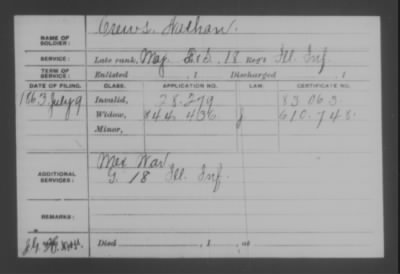 NAME OF SOLDIER: Crews, Nathan.
SERVICE: Late rank, Maj. 18 Reg't Ill. Inf.
TERM OF SERVICE: Enlisted , 1 Discharged , 1
DATE OF FILING. CLASS. APPLICATION NO. LAW. CERTIFICATE NO.
1863 July 9 Invalid, 28.279 83.063.
Widow, 844.436 610.748.
Minor,
ADDITIONAL SERVICES: Mex War
G. 18 Ill. Inf.
REMARKS:
Died , 1 , at